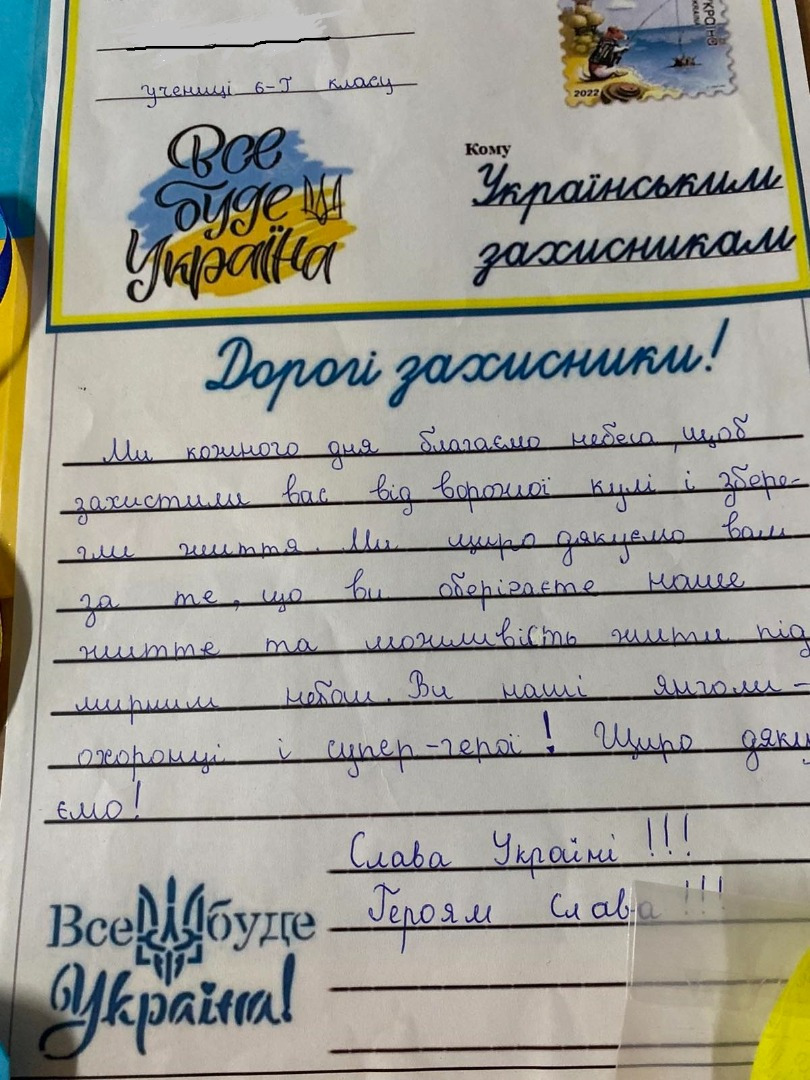 учениці 6-Г класу
2022
Все
буде
Україна
Кому
Українським
захисникам
Дорогі захисники!
Ми кожного дня благаємо небеса, щоб
захистили вас від ворожої кулі і збере-
гли життя. Ми щиро дякуємо вам
за те, що ви оберігаєте наше
життя та можливість жити під
мирним небом. Ви наші янголи-
охоронці і супер-герої! Щиро дяку
ємо!
Слава Україні!!!
Героям Слава!!!
Все буде
Україна!